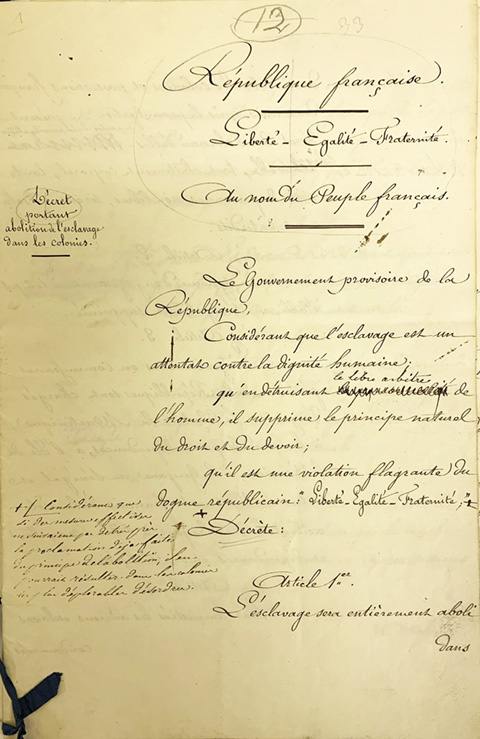 1
12
33
République française.
Liberté - Egalité - Fraternité.
Au nom du Peuple français.
Décret
portant
abolition de l'esclavage
dans les colonies.
Le Gouvernement provisoire de la
République,
Considérant que l'esclavage est un
attentat contre la dignité humaine;
le libre arbitre
qu'en détruisant de
l'homme, il supprime le principe naturel
du droit et du devoir;
qu'il est une violation flagrante du
dogme républicain: "Liberté-Egalité-Fraternité;"+
+
Décrète:
+/ Considérant que
si des mesures effectives
ne suivaient pas de très près
la proclamation déjà faite
du principe de l'abolition, il en
pourrait résulter dans les colonies
les plus déplorables désordres.
Article 1er.
L'esclavage sera entièrement aboli
dans